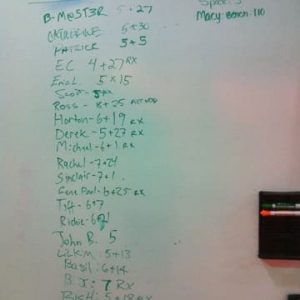 B-M@ST3R 5+27
CATHERINE 5+30
PATRICK 5+5
EC 4+27 RX
ERIC 5x15
Scott-
Ross - 8+25
Horton-6+19 RX
Derek-5+27 RX
Michael-6+1 RX
Rachel-7+24
Sinclair-7+1
Gene Pool-6+25 RX
Tiff-6+7
Richie-6+21
John B. 5
5+13
Basil: 6+14
B J: 7 RX
RICH: 5+18 RX
Space: 5
Mary: Bench-110